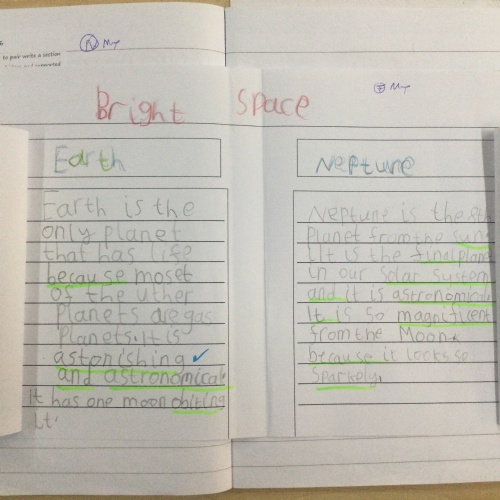 to pair write a section
Bright Space
Earth
Earth is the
only planet
that has life
because moset
of the uther
Planets are gas
Planets. It is
astonishing
and astronomical.
It has one moon obiting
it.
Neptune
Neptune is the 8th
Planet from the sun
It is the final plane
in our solar system
and it is astronomical
It is so magnificent
from the Moon
because it looks so
sparkely.